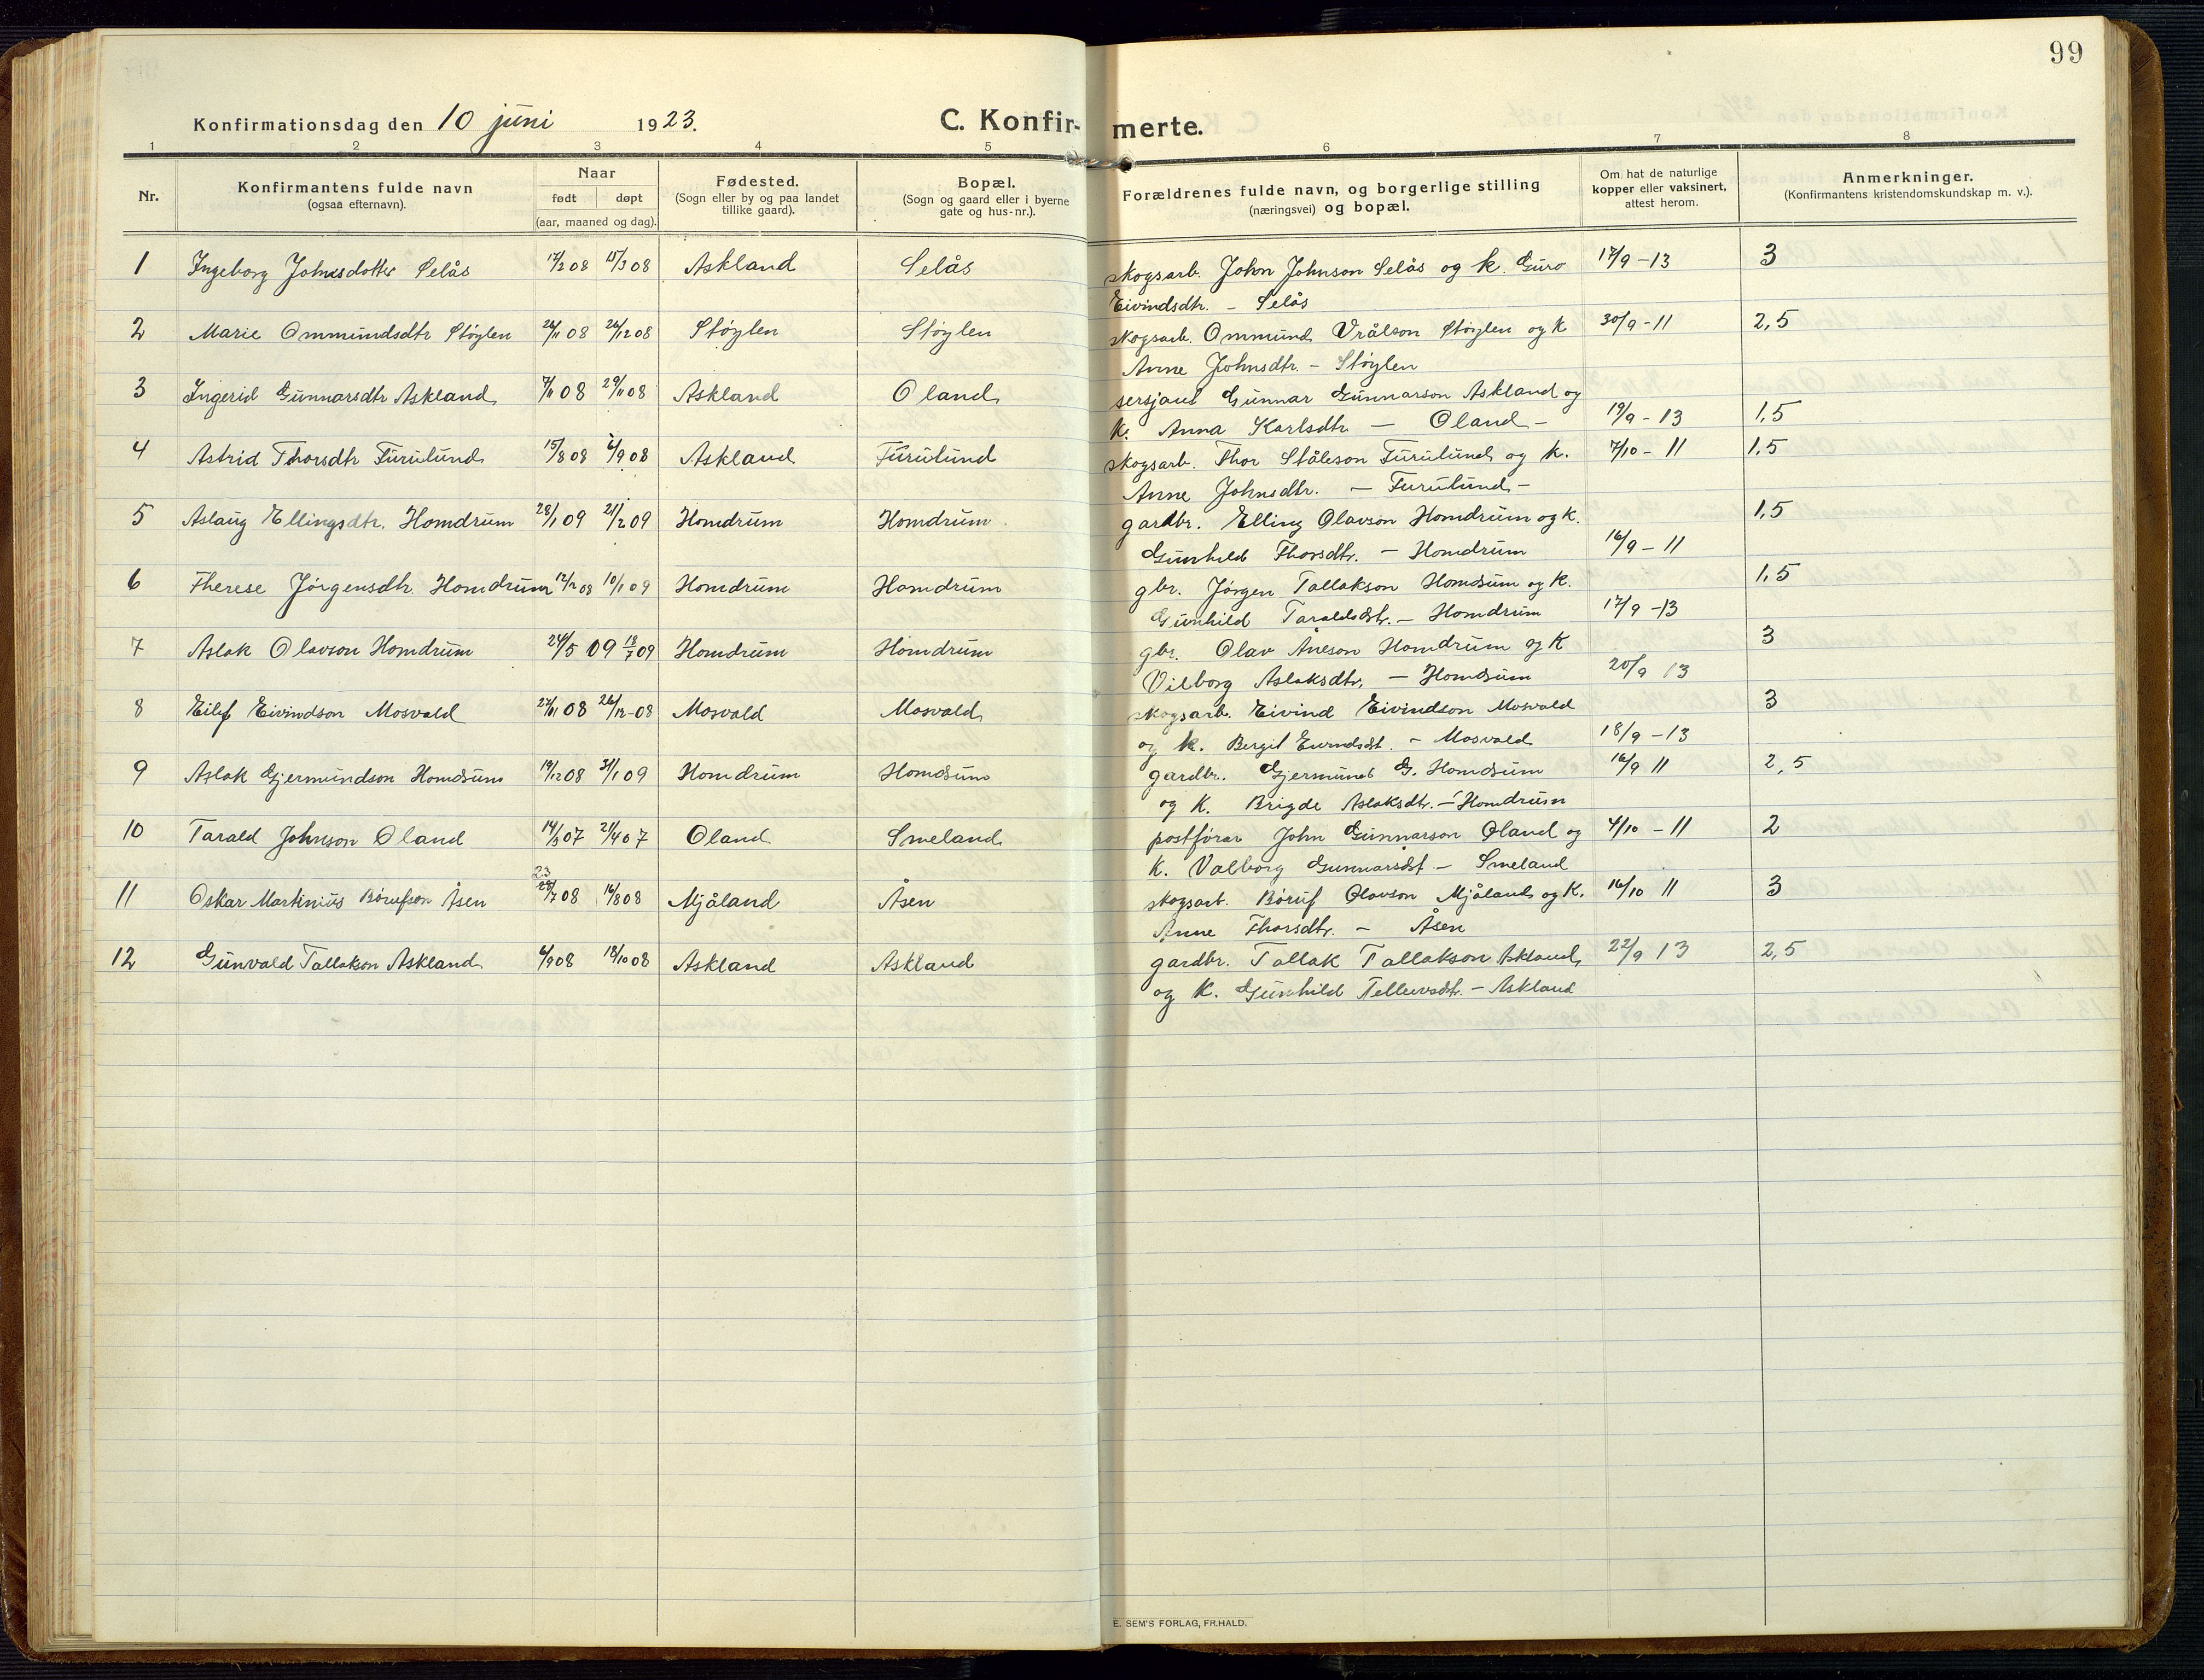 99
Konfirmationsdag den 10 juni 1923.
C. Konfirmerte.
1 2 3 4 5 6 7 8
Nr.
Konfirmantens fulde navn
(ogsaa efternavn).
Naar
født døpt
(aar, maaned og dag).
Fødested.
(Sogn eller by og paa landet
tillike gaard).
Bopæl.
(Sogn og gaard eller i byerne
gate og hus-nr.).
Forældrenes fulde navn, og borgerlige stilling
(næringsvei) og bopæl.
Om hat de naturlige
kopper eller vaksinert,
attest herom.
Anmerkninger.
(Konfirmantens kristendomskundskap m. v.).
1 Ingeborg Johnsdotter Selås 17/2 08 15/3 08 Askland Selås skogsarb. John Johnson Selås og k. Guro 17/9 - 13 3
Eivindsdtr. - Selås
2 Marie Ommundsdtr Støylen /11 08 26/12 08 Støylen Støylen skogsarb. Ommund Vrålson Støylen og k 30/9 - 11 2,5
Anne Johnsdtr. - Støylen
3 Ingerid Gunnarsdtr Askland 7/11 08 29/11 08 Askland Oland sersjant Gunnar Gunnarson Askland og
k. Anna Karlsdtr - Oland - 19/9 - 13 1,5
4 Astrid Thorsdtr Furulund 15/8 08 6/9 08 Askland Furulund skogsarb. Thor Ståleson Furulund og k. 7/10 - 11 1,5
Anne Johnsdtr. - Furulund -
5 Aslaug Ellingsdtr. Homdrum 28/1 09 21/2 09 Homdrum Homdrum gardbr. Elling Olavson Homdrum og k. 1,5
Gunhild Thorsdtr. - Homdrum 16/9 - 11
6 Therese Jørgensdtr. Homdrum 12/12 08 10/1 09 Homdrum Homdrum gbr. Jørgen Tallakson Homdrum og k. 1,5
Gunhild Taraldsdtr. - Homdrum 17/9 - 13
7 Aslak Olavson Homdrum 24/5 09 18/7 09 Homdrum Homdrum gbr. Olav Åneson Homdrum og k 3
Vilborg Aslaksdtr. - Homdrum 20/9 13
8 Eilef Eivindson Mosvald 27/11 08 26/12-08 Mosvald Mosvald skogsarb. Eivind Eivindson Mosvald 3
og k. Bergit - Mosvald 18/9 - 13
9 Aslak Gjermundson Homdrum 19/12 08 31/1 09 Homdrum Homdrum gardbr. Gjermund G. Homdrum 16/9 11 2,5
og k. Brigde Aslaksdtr. - Homdrum
10 Tarald Johnson Oland 14/3 07 21/4 07 Oland Smeland postførar John Gunnarson Oland og 4/10 - 11 2
k. Valborg Gunnarsdt - Smeland
23
11 Oskar Martinius Børufson Åsen /7 08 16/8 08 Mjåland Åsen skogsarb. Børuf Olavson Mjåland og k. 16/10 11 3
Anne Thorsdtr. - Åsen
12 Gunvald Tallakson Askland 6/9 08 18/10 08 Askland Askland gardbr. Tallak Tallakson Askland 22/9 13 2,5
og k. Gunhild Tellevsdtr. - Askland
E. SEM'S FORLAG, FR.HALD.